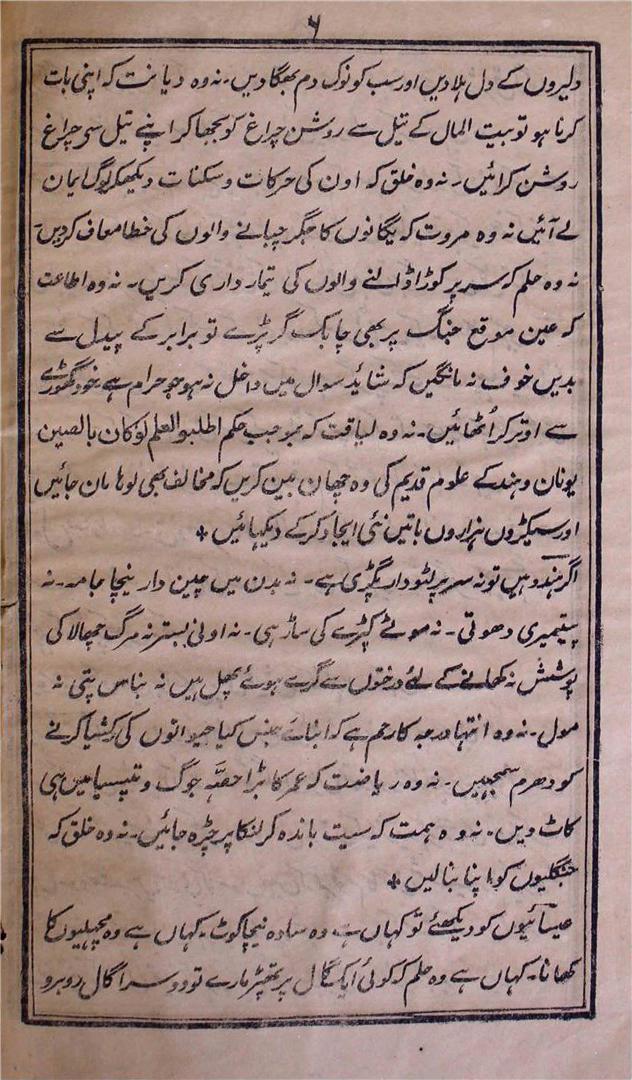 ۶
دلیروں کے دل ہلا دیں اور سب کو نوک دم بھگا دیں۔ نہ وہ دیانت کہ اپنی بات
کرنا ہو تو بیت المال کے تیل سے روشن چراغ کو بجھا کر اپنے تیل سی چراغ
روشن کرائیں۔ نہ وہ خلق کہ اون کی حرکات و سکنات دیکھکر لوگ ایمان
لے آئیں نہ وہ مروت کہ یگانوں کا جگر چبانے والوں کی خطا معاف کردیں۔
نہ وہ حلم کہ سر پر کوڑا ڈالنے والوں کی تیمار داری کریں۔ نہ وہ اطاعت
کہ عین موقع جنگ پر بھی چابک گر پڑے تو برابر کے پیدل سے
بدیں خوف نہ مانگیں کہ شاید سوال میں داخل نہ ہو جو حرام ہے خود گھوڑے
سے اوتر کر اُٹھائیں۔ نہ وہ لیاقت کہ بموجب حکم اطلبو العلم لو کان بالصین
یونان و ہند کے علوم قدیم کی وہ چھان بین کریں کہ مخالف بھی لوہا مان جائیں
اور سیکڑوں ہزاروں باتیں نئی ایجاد کر کے دیکھائیں +
اگر ہندو ہیں تو نہ سر پر لٹو دار پگڑی ہے۔ نہ بدن میں چین دار نیچا جامہ۔ نہ
پیتمبری دھوتی۔ نہ موٹے کپڑے کی ساڑہی۔ نہ اونی بستر نہ مرگ چھالا کی
پوشش نہ کھانے کے لئے درختوں سے گرے ہوئے پھل ہیں نہ بناس پتی نہ
مول۔ نہ وہ انتہا درجہ کا رحم ہے کہ ابنائے جنس کیا حیوانوں کی رکشیا کرنے
کو دھرم سمجہیں۔ نہ وہ ریاضت کہ عمر کا بڑا حصّہ جوگ و تپسیا میں ہی
کاٹ دیں۔ نہ وہ ہمت کہ سیت باندہ کر لنکا پر چڑہ جائیں۔ نہ وہ خلق کہ
جنگلیوں کو اپنا بنا لیں +
عیسائیوں کو دیکھئے تو کہاں ہے وہ سادہ نیچا کوٹ۔ کہاں ہے وہ مچہلیوں کا
کھانا۔ کہاں ہے وہ حلم کہ کوئی ایک گال پر تھپڑ مارے تو دوسرا گال روبرو